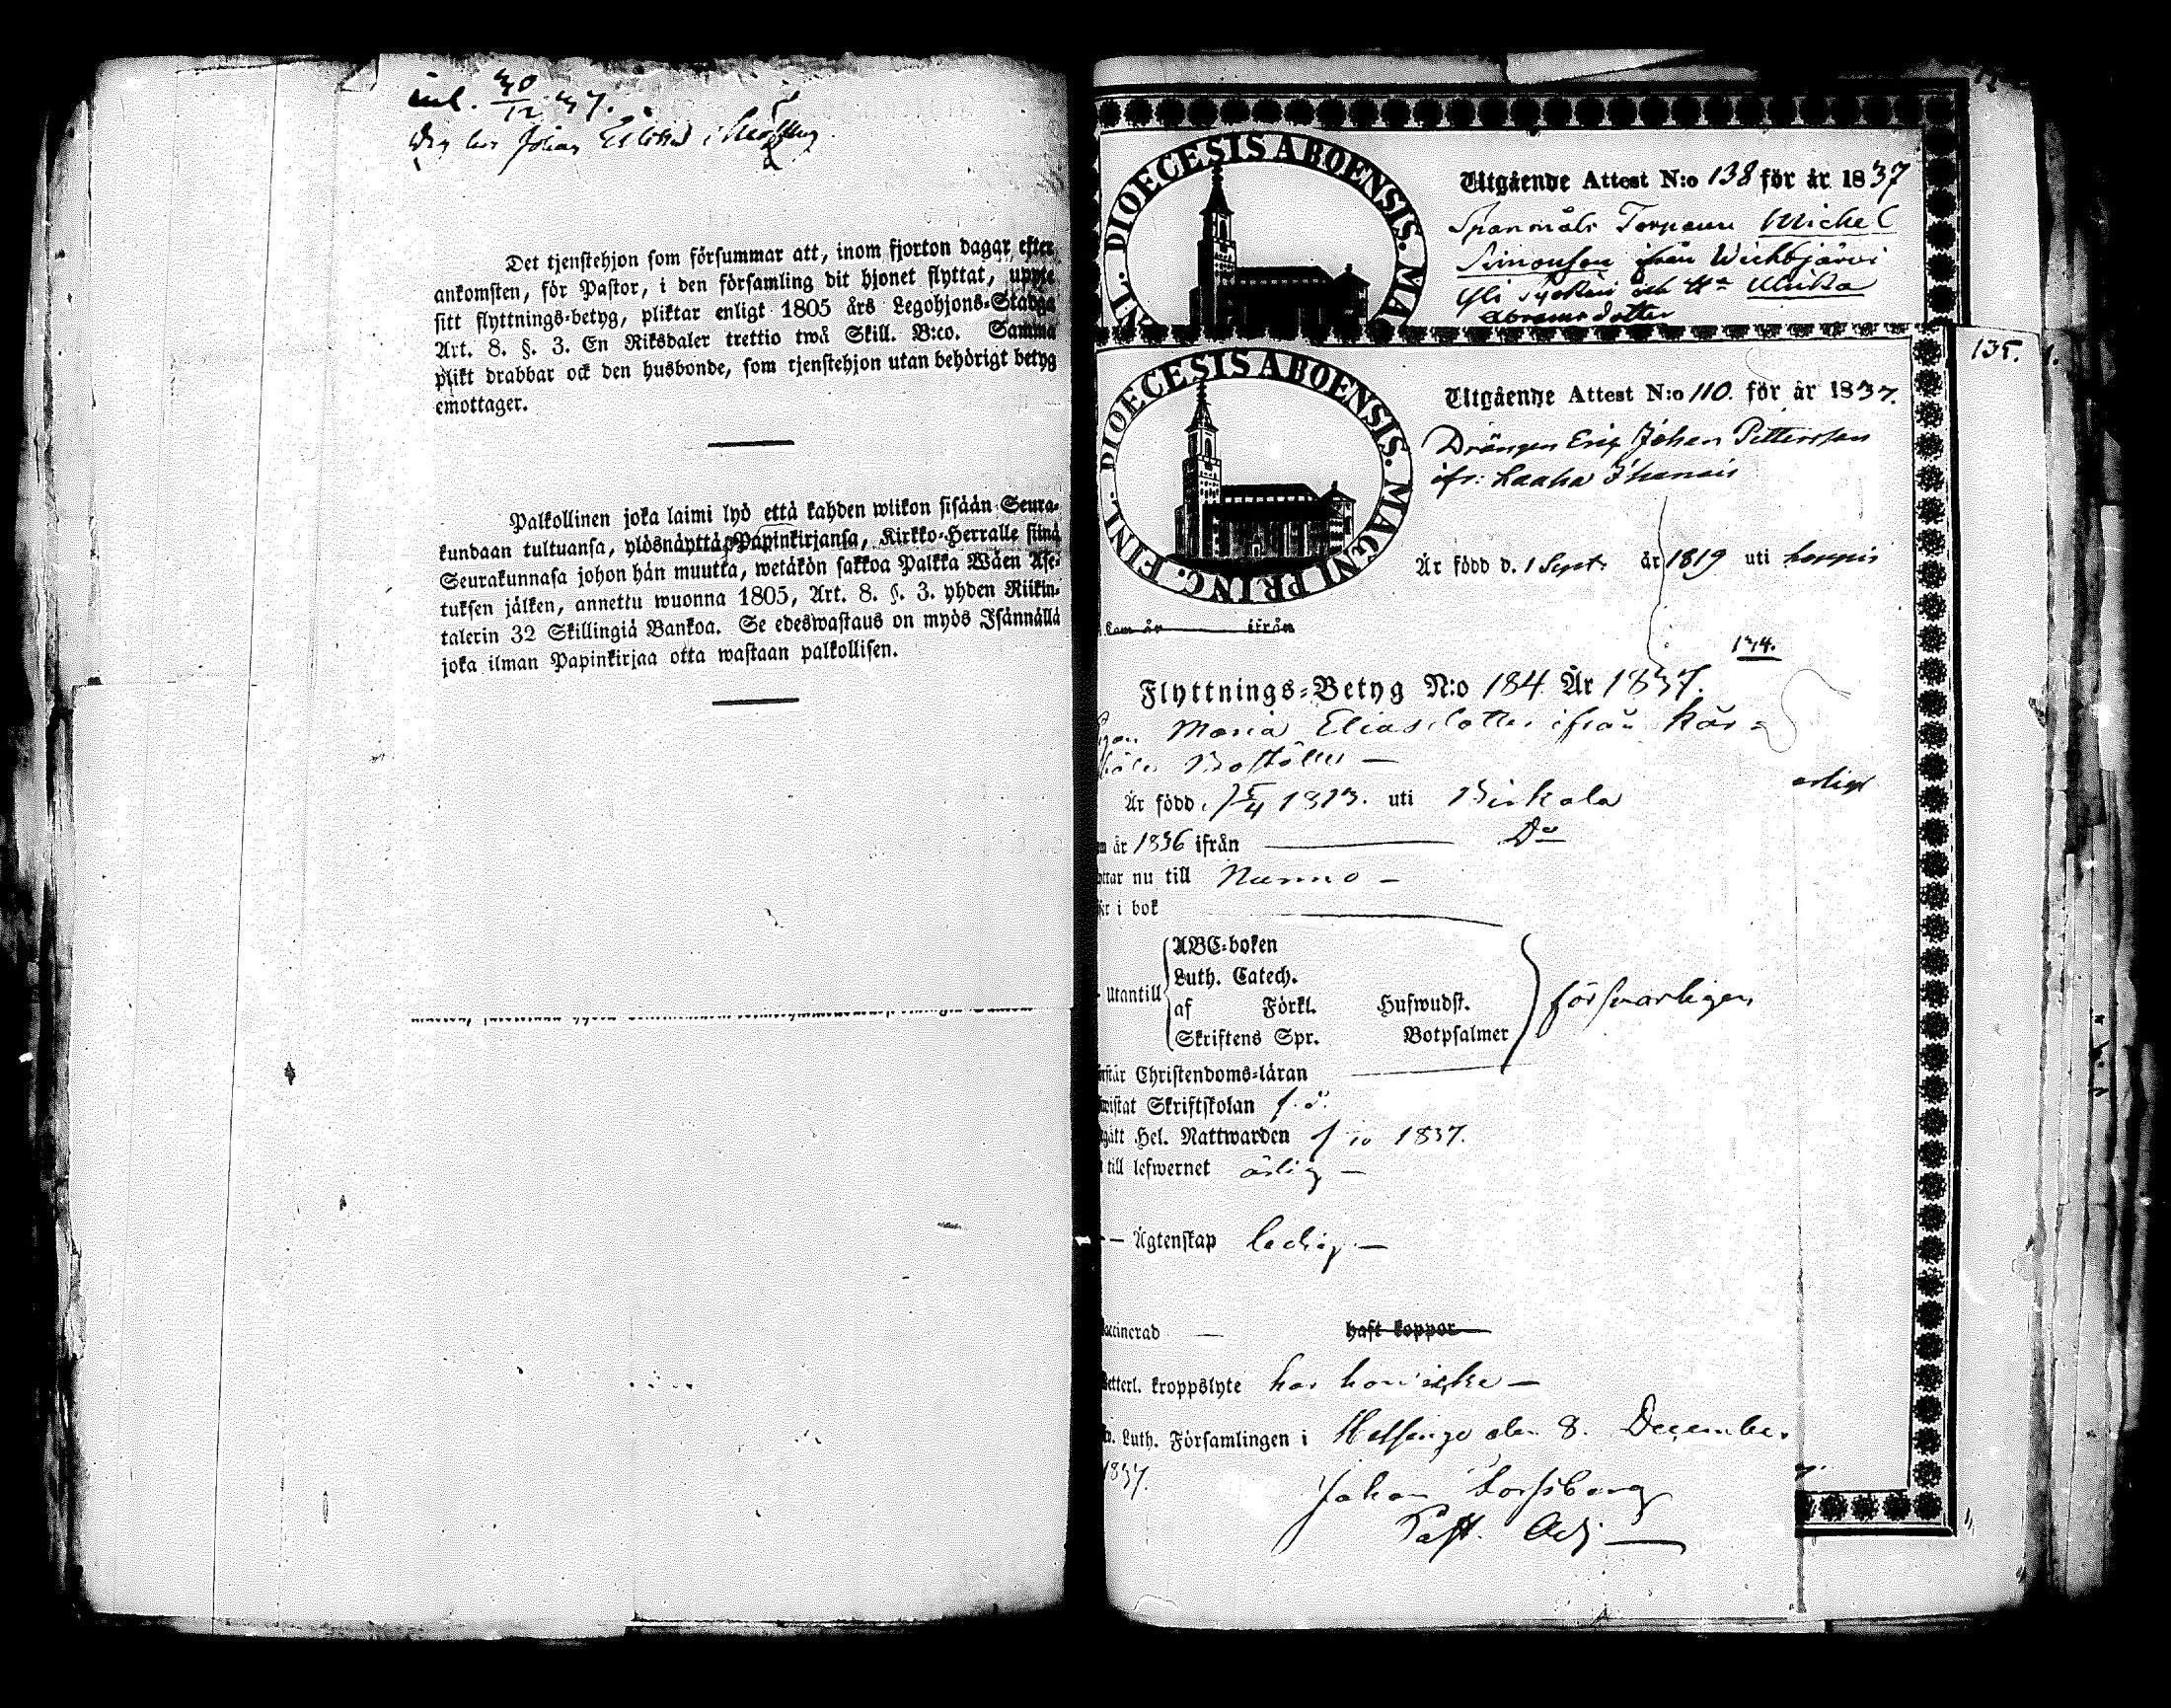 inl. 30/12 37.
Johan
Det tjenstehjon som försummar att, inom fjorton dagar efter
ankomsten, för Pastor, i den församling dit hjonet flyttat, uppte
sitt flyttnings-betyg, pliktar enligt 1805 års Legohjons-Stadga
Art. 8. §. 3. En Riksdaler trettio twå Skill. B:co. Samma
plikt drabbar ock den husbonde, som tjenstehjon utan behörigt betyg
emottager.
Palkollinen joka laimi lyö että kahden wiikon sisään Seura-
kundaan tultuansa, ylösnäyttä Papinkirjansa, Kirkko-Herralle siinä
Seurakunnasa johon hän muutta, wetäkön sakkoa Palkka Wäen Ase-
tuksen jälken, annettu wuonna 1805, Art. 8. §. 3. yhden Riikin-
talerin 32 Skillingiä Bankoa. Se edeswastaus on myös Isännällä
joka ilman Papinkirjaa otta wastaan palkollisen.
L. DIOECESIS ABOENSIS. MA
Utgående Attest N:o 138 för år 1837
Spanmåls Torparen Michel
Simonson ifrån Wichbjärvi
Yli och Ulrika
Abramsdotter
135.
FINL. DIOECESIS ABOENSIS. MAGNI PRINC.
Utgående Attest N:o 110. för år 1837.
Drängen Eric Johan Pettersson
ifr: Laaha
Är född d. 1 Sept. år 1819 uti Loppis
Kom år ifrån
134.
Flyttnings-Betyg N:o 184 År 1837.
Maria Eliasdotter ifrån Kår=
böle
Är född 1813. uti Birkala
m år 1836 ifrån Do
ttar nu till Nummo –
är i bok
Utantill
ABC-boken
Luth. Catech.
af Förkl. Huswudst.
Skriftens Spr. Botpsalmer
försvarligen
rstår Christendoms-läran
wistat Skriftskolan
gått Hel. Nattwarden 1837.
till lefwernet ärlig –
– Ägtenskap ledig –
accinerad – haft koppor
etterl. kroppslyte har hon icke –
v. Luth. Församlingen i Helsinge den 8. December
1837.
Johan Forssberg
Past. Adj